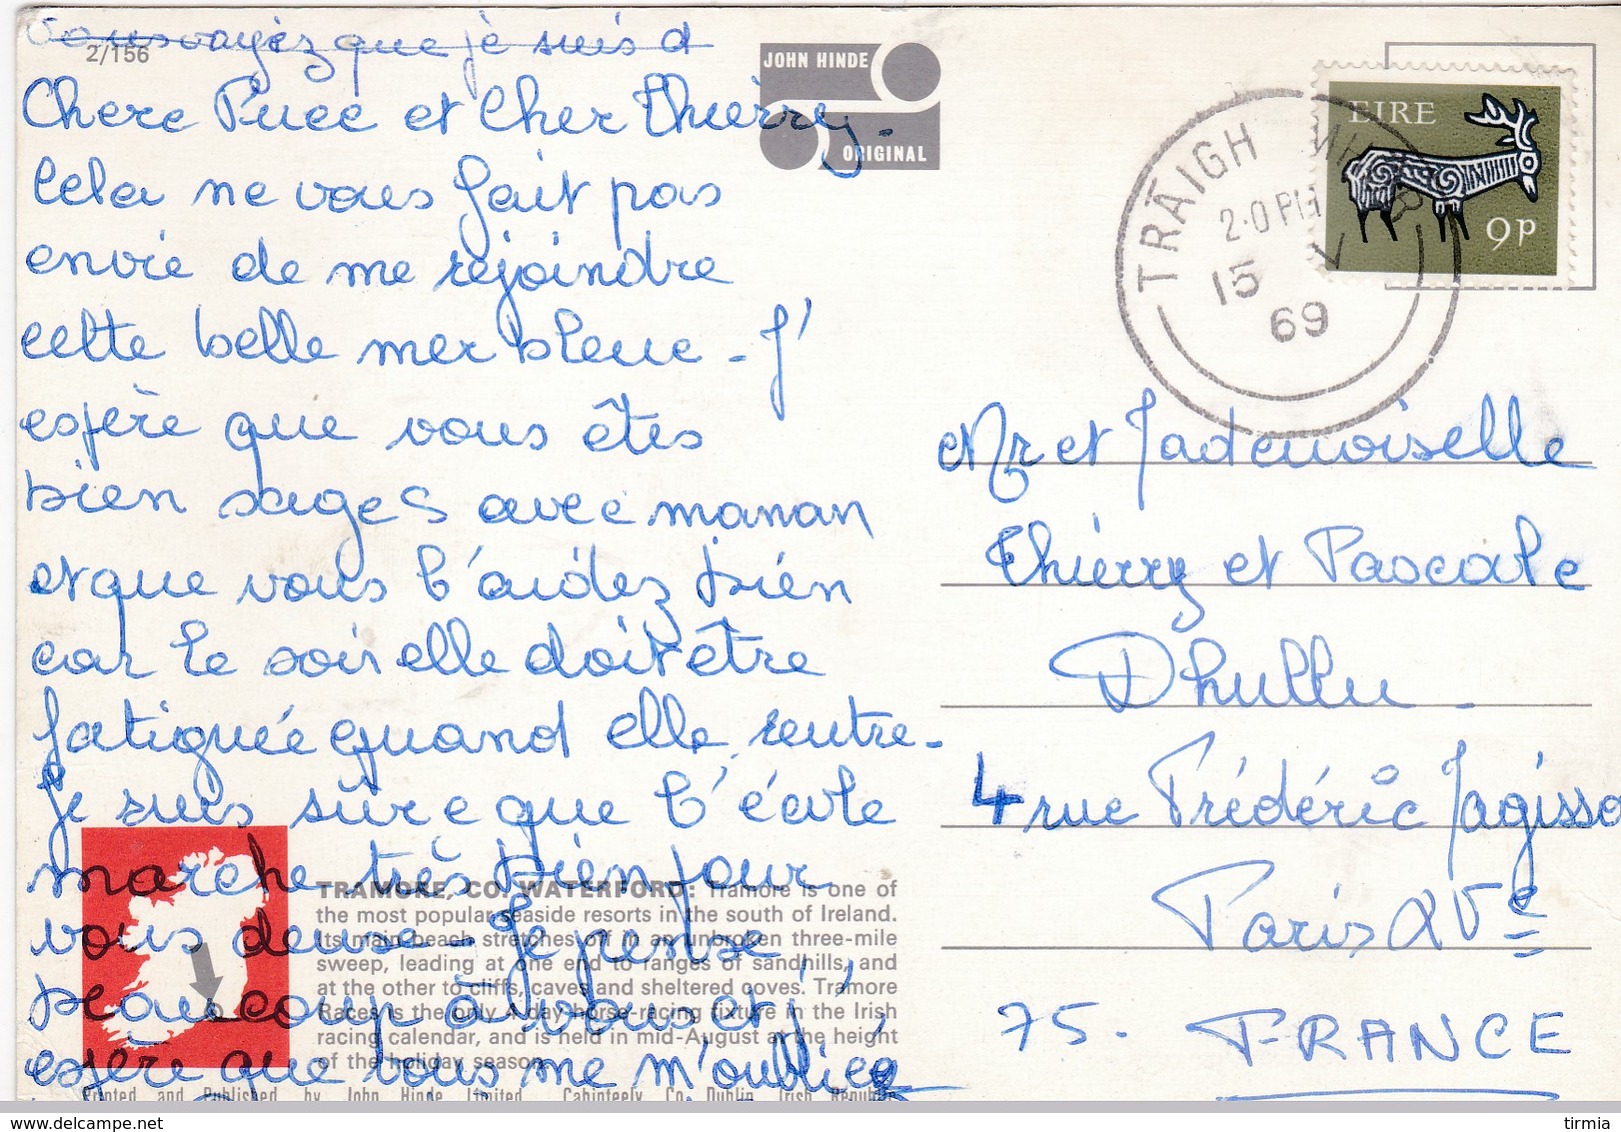 Vous voyez que je suis d
2/156
Chere Puce et Cher Thierry.
Cela ne vous fait pas
envie de me rejoindre
cette belle mer bleue - J'
espère que vous êtes
bien sages avec maman
et que vous l'aidez bien
car le soir elle doit être
fatiguée quand elle rentre -
Je suis sûre que l'école
marche très bien pour
vous deux - Je pense
beaucoup à vous et j'
espère que vous ne m'oubliez
JOHN HINDE
ORIGINAL
EIRE
9p
TRÁIGH MHÓR
2·0 PM
15 V
69
Mr et Mademoiselle
Thierry et Pascale
Dhullu -
4 rue Frédéric
Paris XVe
75. FRANCE
TRAMORE, CO. WATERFORD: Tramore is one of
the most popular seaside resorts in the south of Ireland.
Its main beach stretches off in an unbroken three-mile
sweep, leading at one end to ranges of sandhills, and
at the other to cliffs, caves and sheltered coves. Tramore
Races is the only 4 day horse-racing fixture in the Irish
racing calendar, and is held in mid-August at the height
of the holiday season.
Printed and Published by John Hinde Limited, Cabinteely Co Dublin, Irish Republic
www.delcampe.net
tirmia